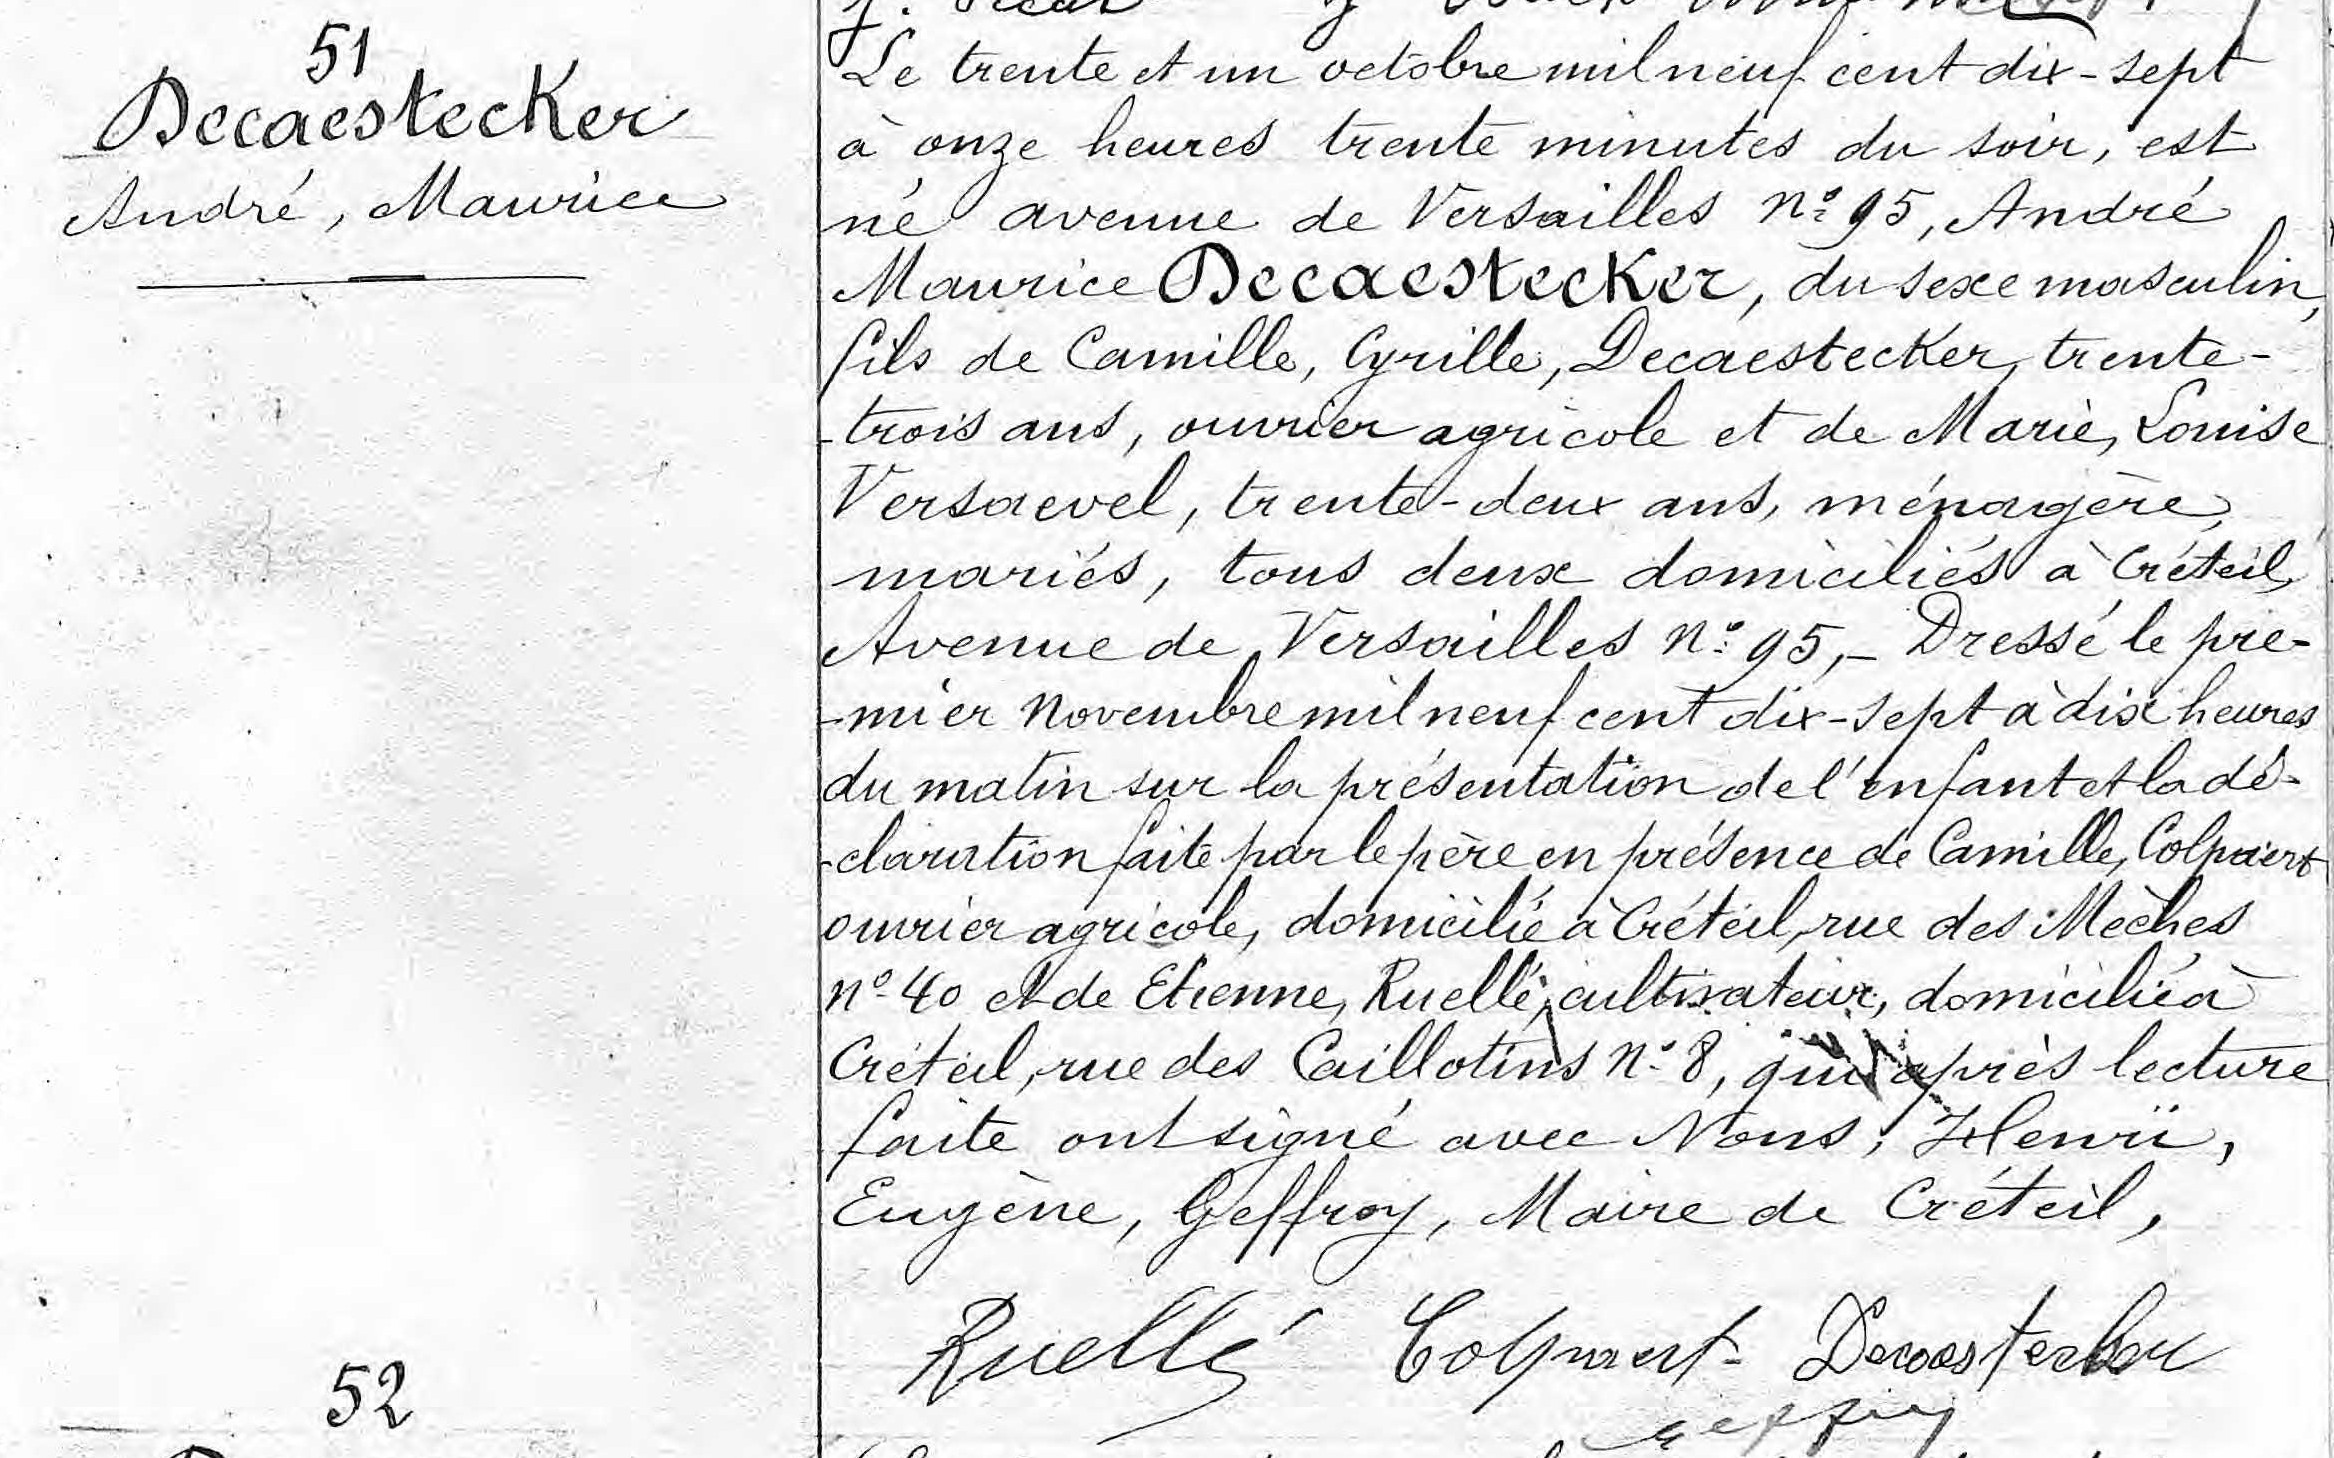 51
Decaestecker
André, Maurice
Le trente et un octobre mil neuf cent dix-sept
à onze heures trente minutes du soir, est
né avenue de Versailles n° 95, André
Maurice Decaestecker, du sexe masculin,
fils de Camille, Cyrille, Decaestecker, trente-
-trois ans, ouvrier agricole et de Marie, Louise
Versaevel, trente-deux ans, ménagère,
mariés, tous deux domiciliés à Créteil,
Avenue de Versailles N° 95,- Dressé le pre-
-mier Novembre mil neuf cent dix-sept à dix heures
du matin sur la présentation de l'enfant et la dé-
-claration faite par le père en présence de Camille, Colpaert
ouvrier agricole, domicilié à Créteil, rue des Mèches
n° 40 et de Etienne, Ruellé, cultivateur, domicilié à
Créteil, rue des Caillotins N° 8, qui après lecture
faite ont signé avec Nous, Henri,
Eugène, Geffroy, Maire de Créteil,
Ruellé Colpaert Decaestecker
Geffroy
52